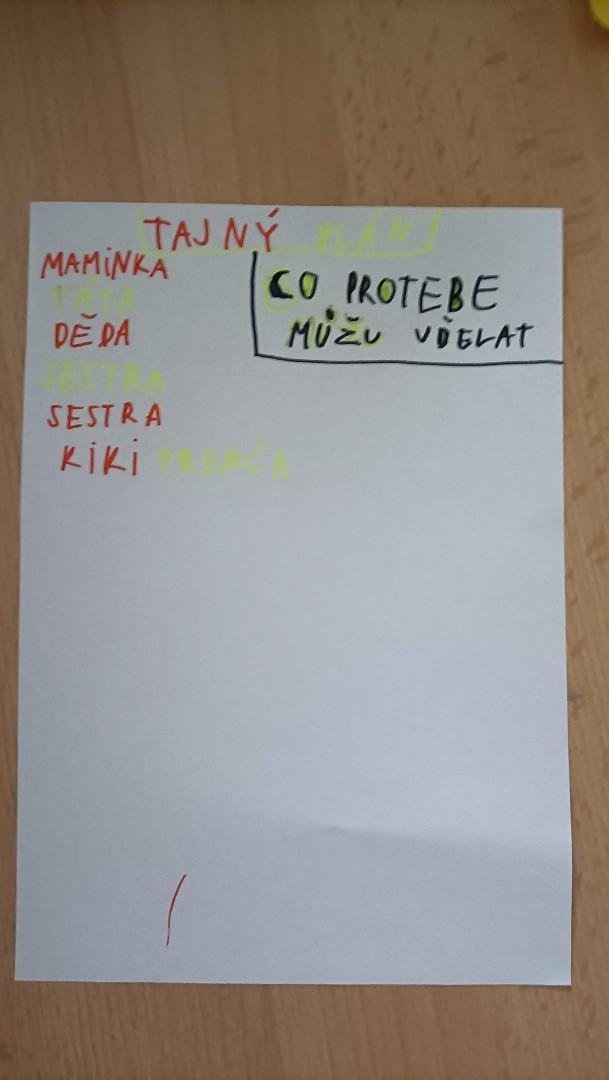 TAJNÝ PLÁN
MAMiNKA
TÁTA
DĚDA
SESTRA
SESTRA
KiKi
CO PROTEBE
MŮŽU VĎELAT